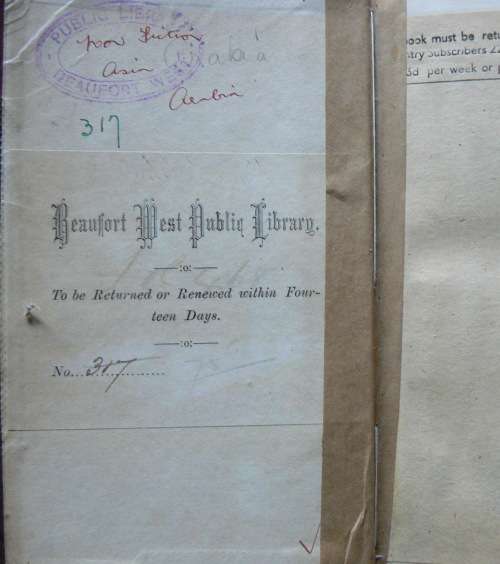 PUBLIC LIBRARY
BEAUFORT WEST
non fiction
Asia
Arabia
317
Beaufort West Public Library.
To be Returned or Renewed within Four-
teen Days.
No...317
ook must be retu
ntry Subscribers
3d per week or p